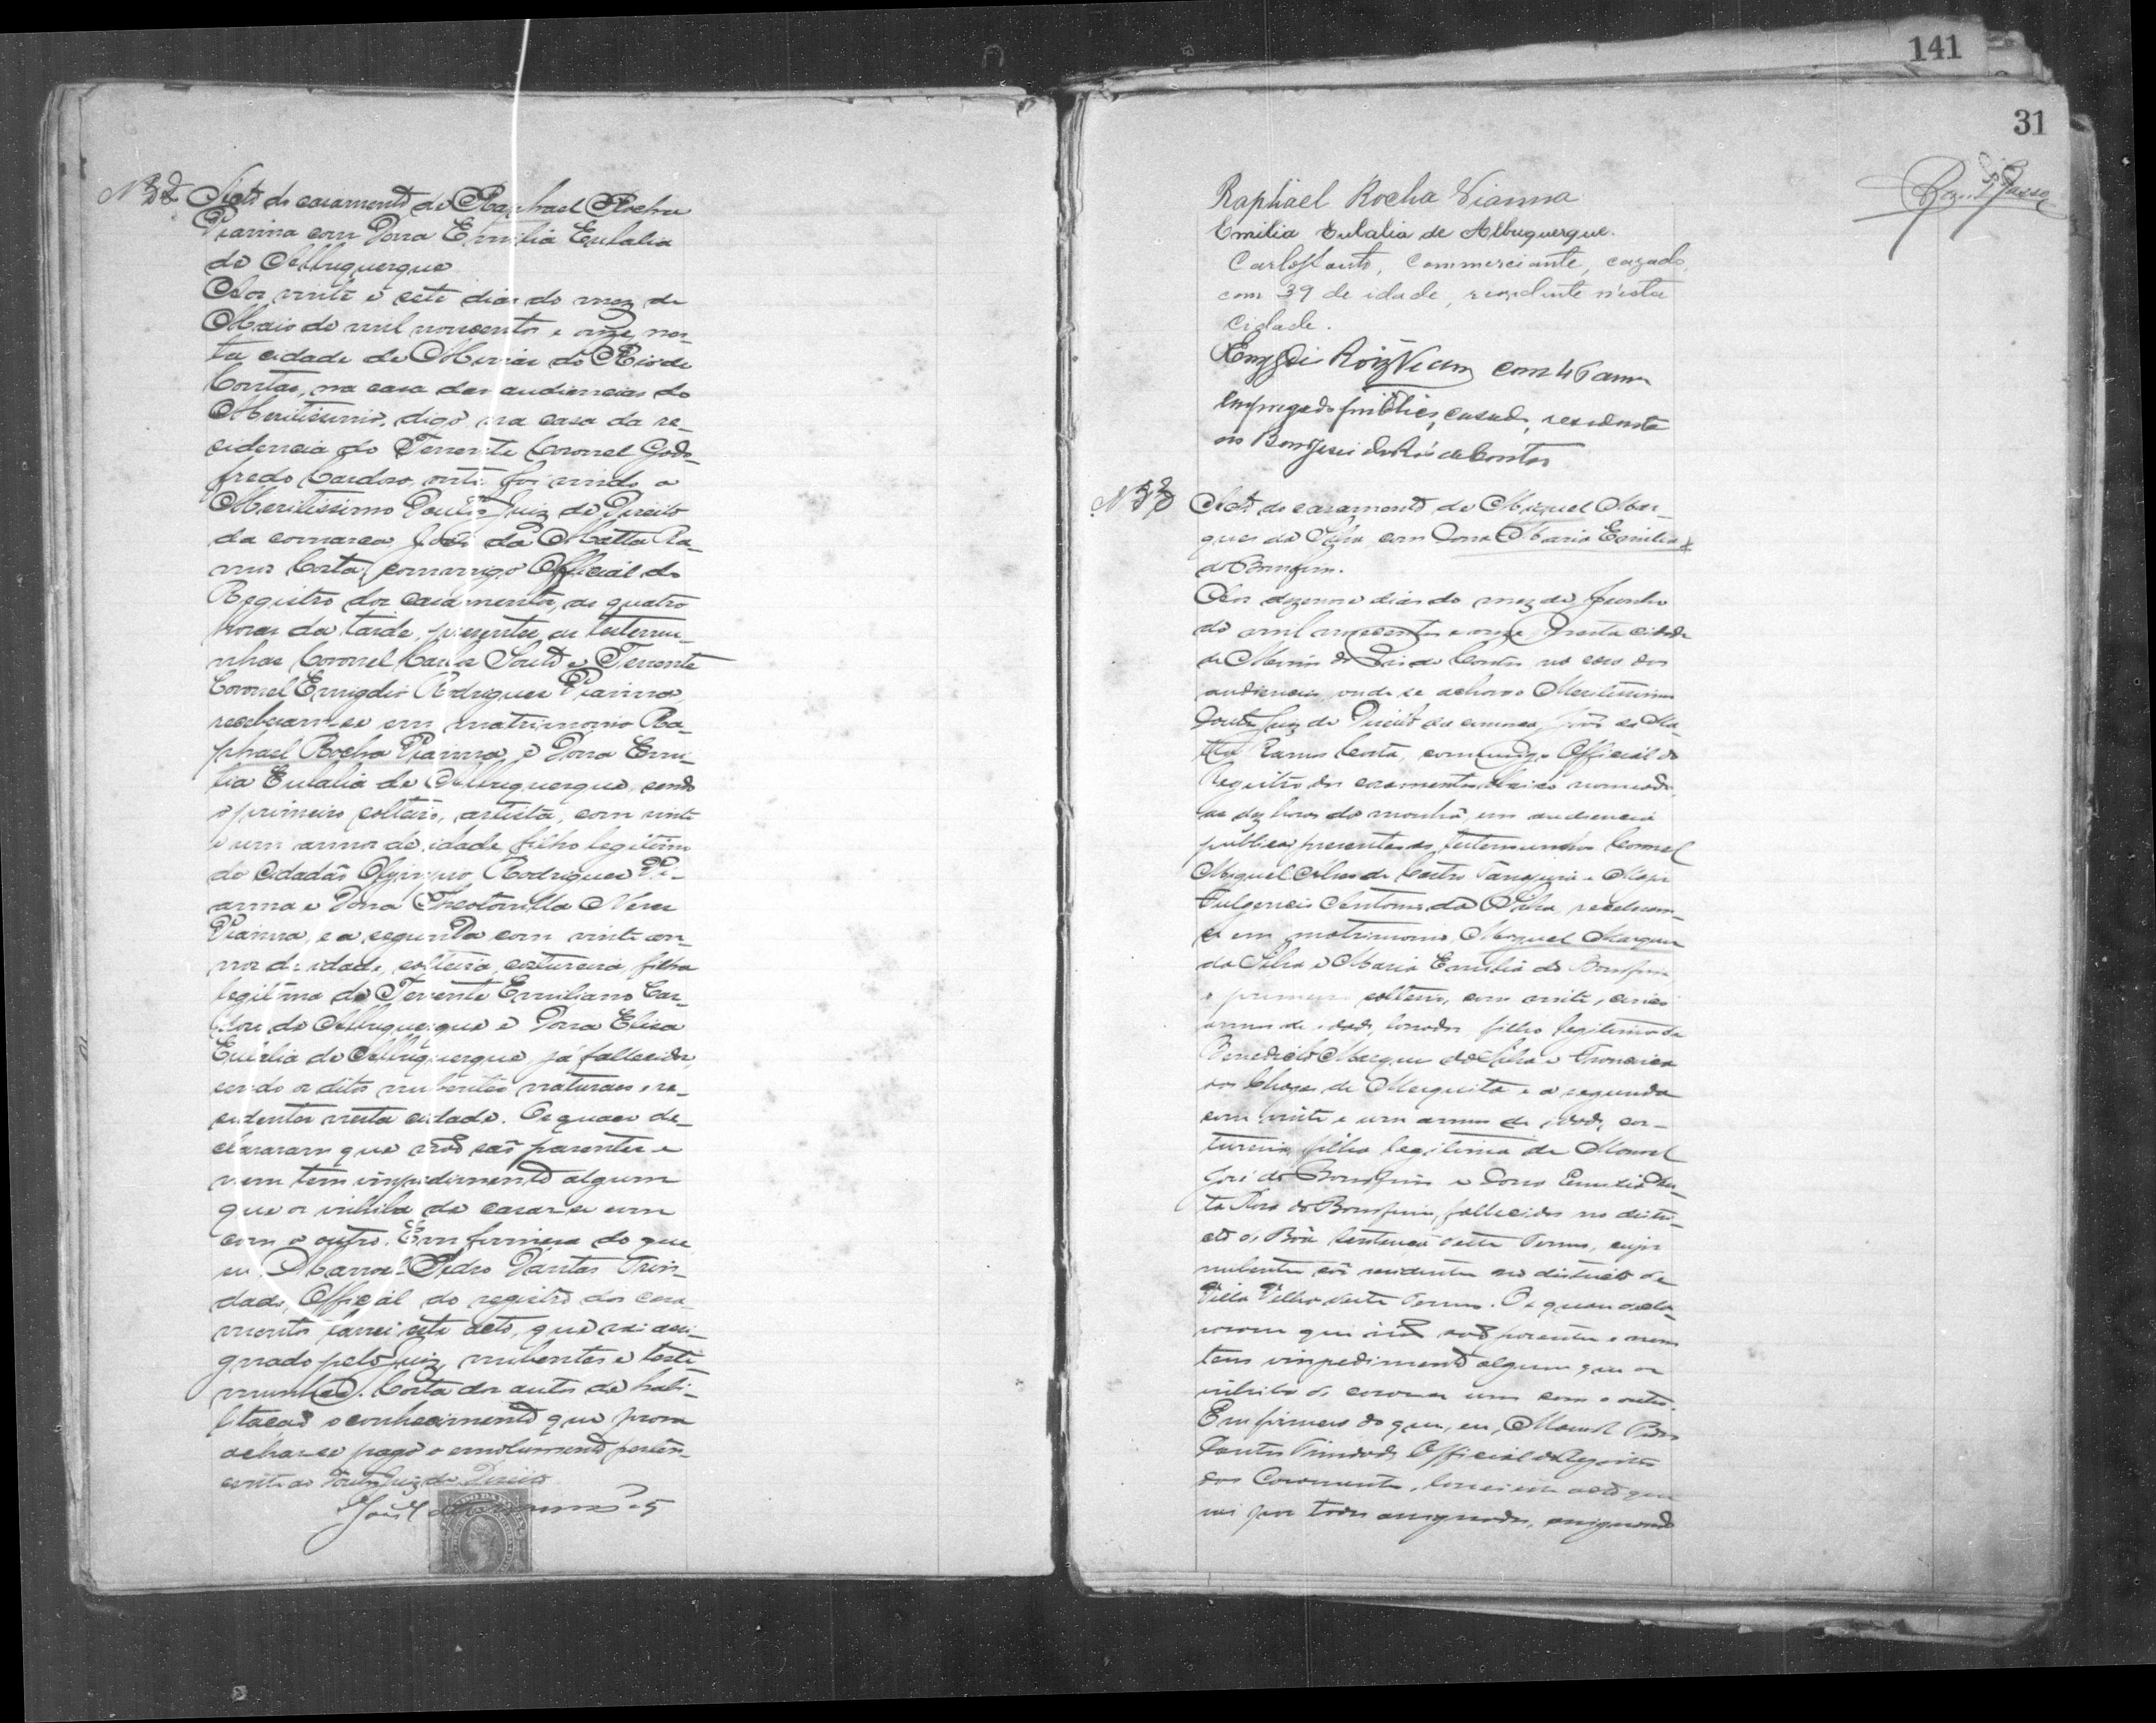 141
31
Acto do casamento de Raphael Rocha
Vianna com Dona Emilia Eulalia
de Albuquerque
Aos vinte e sete dias do mez de
Maio de mil novecentos e onze, nes-
ta cidade de Minas do Rio de
Contas, na casa das audiencias do
Meritissimo, digo, na casa da re-
sidencia do Tenente Coronel Godo-
fredo Cardoso, onde foi vindo o
Meritissimo Doutor Juiz de Direito
da comarca, José da Matta Ra-
mos Costa, commigo Official do
Registro dos casamentos, as quatro
horas da tarde, presentes as testemu-
nhas Coronel Carlos Souto e Tenente
Coronel Emigdio Rodrigues Vianna,
receberam-se em matrimonio Ra-
phael Rocha Vianna e Dona Emi-
lia Eulalia de Albuquerque, sendo
o primeiro solteiro, artista, com vinte
e um annos de idade, filho legitimo
do cidadão Olympio Rodrigues Vi-
anna e Dona Theotonilla Neves
Vianna, e a segunda com vinte an-
nos de idade, solteira, costureira, filha
legitima do Tenente Emiliano Car-
doso de Albuquerque e Dona Elisa
Eulalia de Albuquerque, já fallecidos,
sendo os ditos nubentes naturaes e re-
sidentes nesta cidade. Os quaes de-
clararam que não são parentes e
nem tem impedimento algum
que os inhiba de casar-se um
com o outro. Em firmeza do que
eu Manoel Pedro Dantas Trin-
dade, Official do registro dos casa-
mentos lavrei este acto, que vai assi-
gnado pelo Juiz, nubentes e teste-
munhas. Consta dos autos de habi-
litação o conhecimento que prova
achar-se pago o emolumento perten-
cente ao Doutor Juiz de Direito
Raphael Rocha Vianna
Emilia Eulalia de Albuquerque.
Carlos Souto, Commerciante, cazado,
com 39 de idade, rezidente n'esta
Cidade.
Emygdio Roiz Vianna com 46 annos
empregado publico, casado, residente
no Bom Jesus do Rio de Contas
Acto do casamento de Miguel Mar-
ques da Silva com Dona Maria Emilia
do Bomfim.
Aos dezenove dias do mez de Junho
de mil novecentos e onze, nesta cidade
de Minas do Rio de Contas na casa das
audiencias, onde se achava o Meritissimo
Doutor Juiz de Direito da comarca, José da Ma-
tta Ramos Costa, commigo Official do
Registro dos casamentos abaixo nomeado,
as dez horas da manhã, em audiencia
publica, presentes as testemunhas Coronel
Miguel Alves de Castro Tanajura e Major
Fulgencio Antonio da Silva, receberam-
se em matrimonio Miguel Marques
da Silva e Maria Emilia do Bomfim,
o primeiro solteiro, com vinte e cinco
annos de idade, lavrador, filho legitimo de
Benedicto Marques da Silva e Francisca
das Chagas de Mesquita e a segunda
com vinte e um annos de idade, cos-
tureira, filha legitima de Manoel
José do Bomfim e Dona Emilia
Rosa do Bomfim, fallecidos no distri-
cto de Bôa Sentença deste Termo, cujos
nubentes são residentes no districto de
Villa Velha deste Termo. Os quaes decla-
raram que não são parentes e nem
tem impedimento algum que os
inhiba de casar-se um com o outro.
Em firmeza do que, eu, Manoel Pedro
Dantas Trindade, Official do Registro
dos Casamentos, lavrei este acto que
vai por todos assignados, assignando